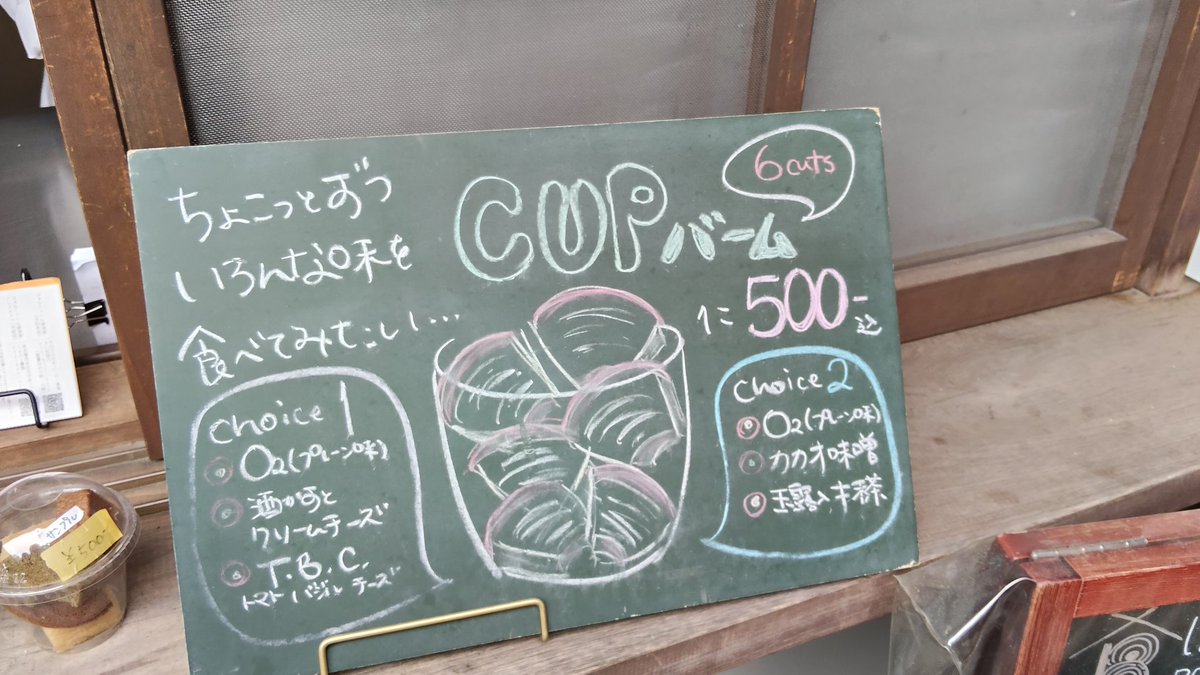 ちょこっとずつ
いろんな味を
食べてみてこしい…
CUPバーム
6cuts
1こ 500-
込
choice 1
O2(プレーン味)
酒かすと
クリームチーズ
T.B.C.
トマト バジル チーズ
choice 2
O2(プレーン味)
カカオ味噌
玉露入キ茶
サンプル
¥500-
B